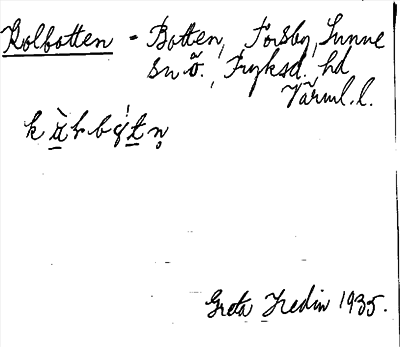 Kolbotten = Botten, Forsby, Sunne
sn ö., Fryksd. hd
Värml. l.
Greta Hedin 1935.